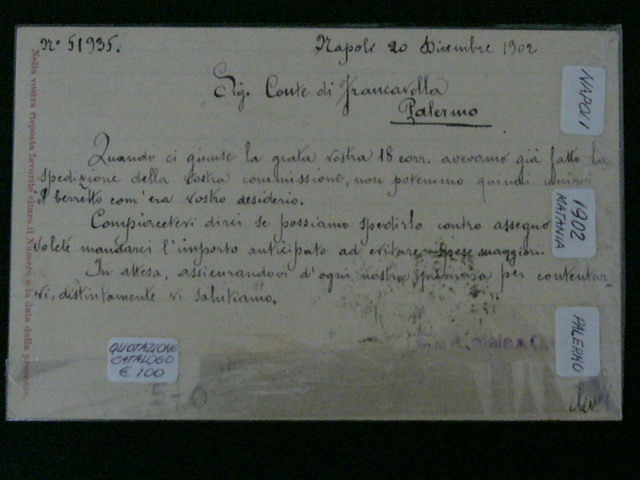 Nº 51935.
Napoli 20 Dicembre 1902
Sig. Conte di Francavilla
Palermo
Quando ci giunse la grata vostra 18 corr. avevamo già fatto la
spedizione della vostra commissione, non potemmo quindi unirvi
il berretto com'era vostro desiderio.
Compiacetevi dirci se possiamo spedirlo contro assegno
volete mandarci l'importo anticipato ad evitare spese maggiori.
In attesa, assicurandovi d'ogni nostra premura per contentar-
vi, distintamente vi salutiamo.
Nella vostra risposta favorite citare il Numero e la data della presente.
NAPOLI
1902
MATANIA
PALERMO
QUOTAZIONE
CATALOGO
€ 100
5-0